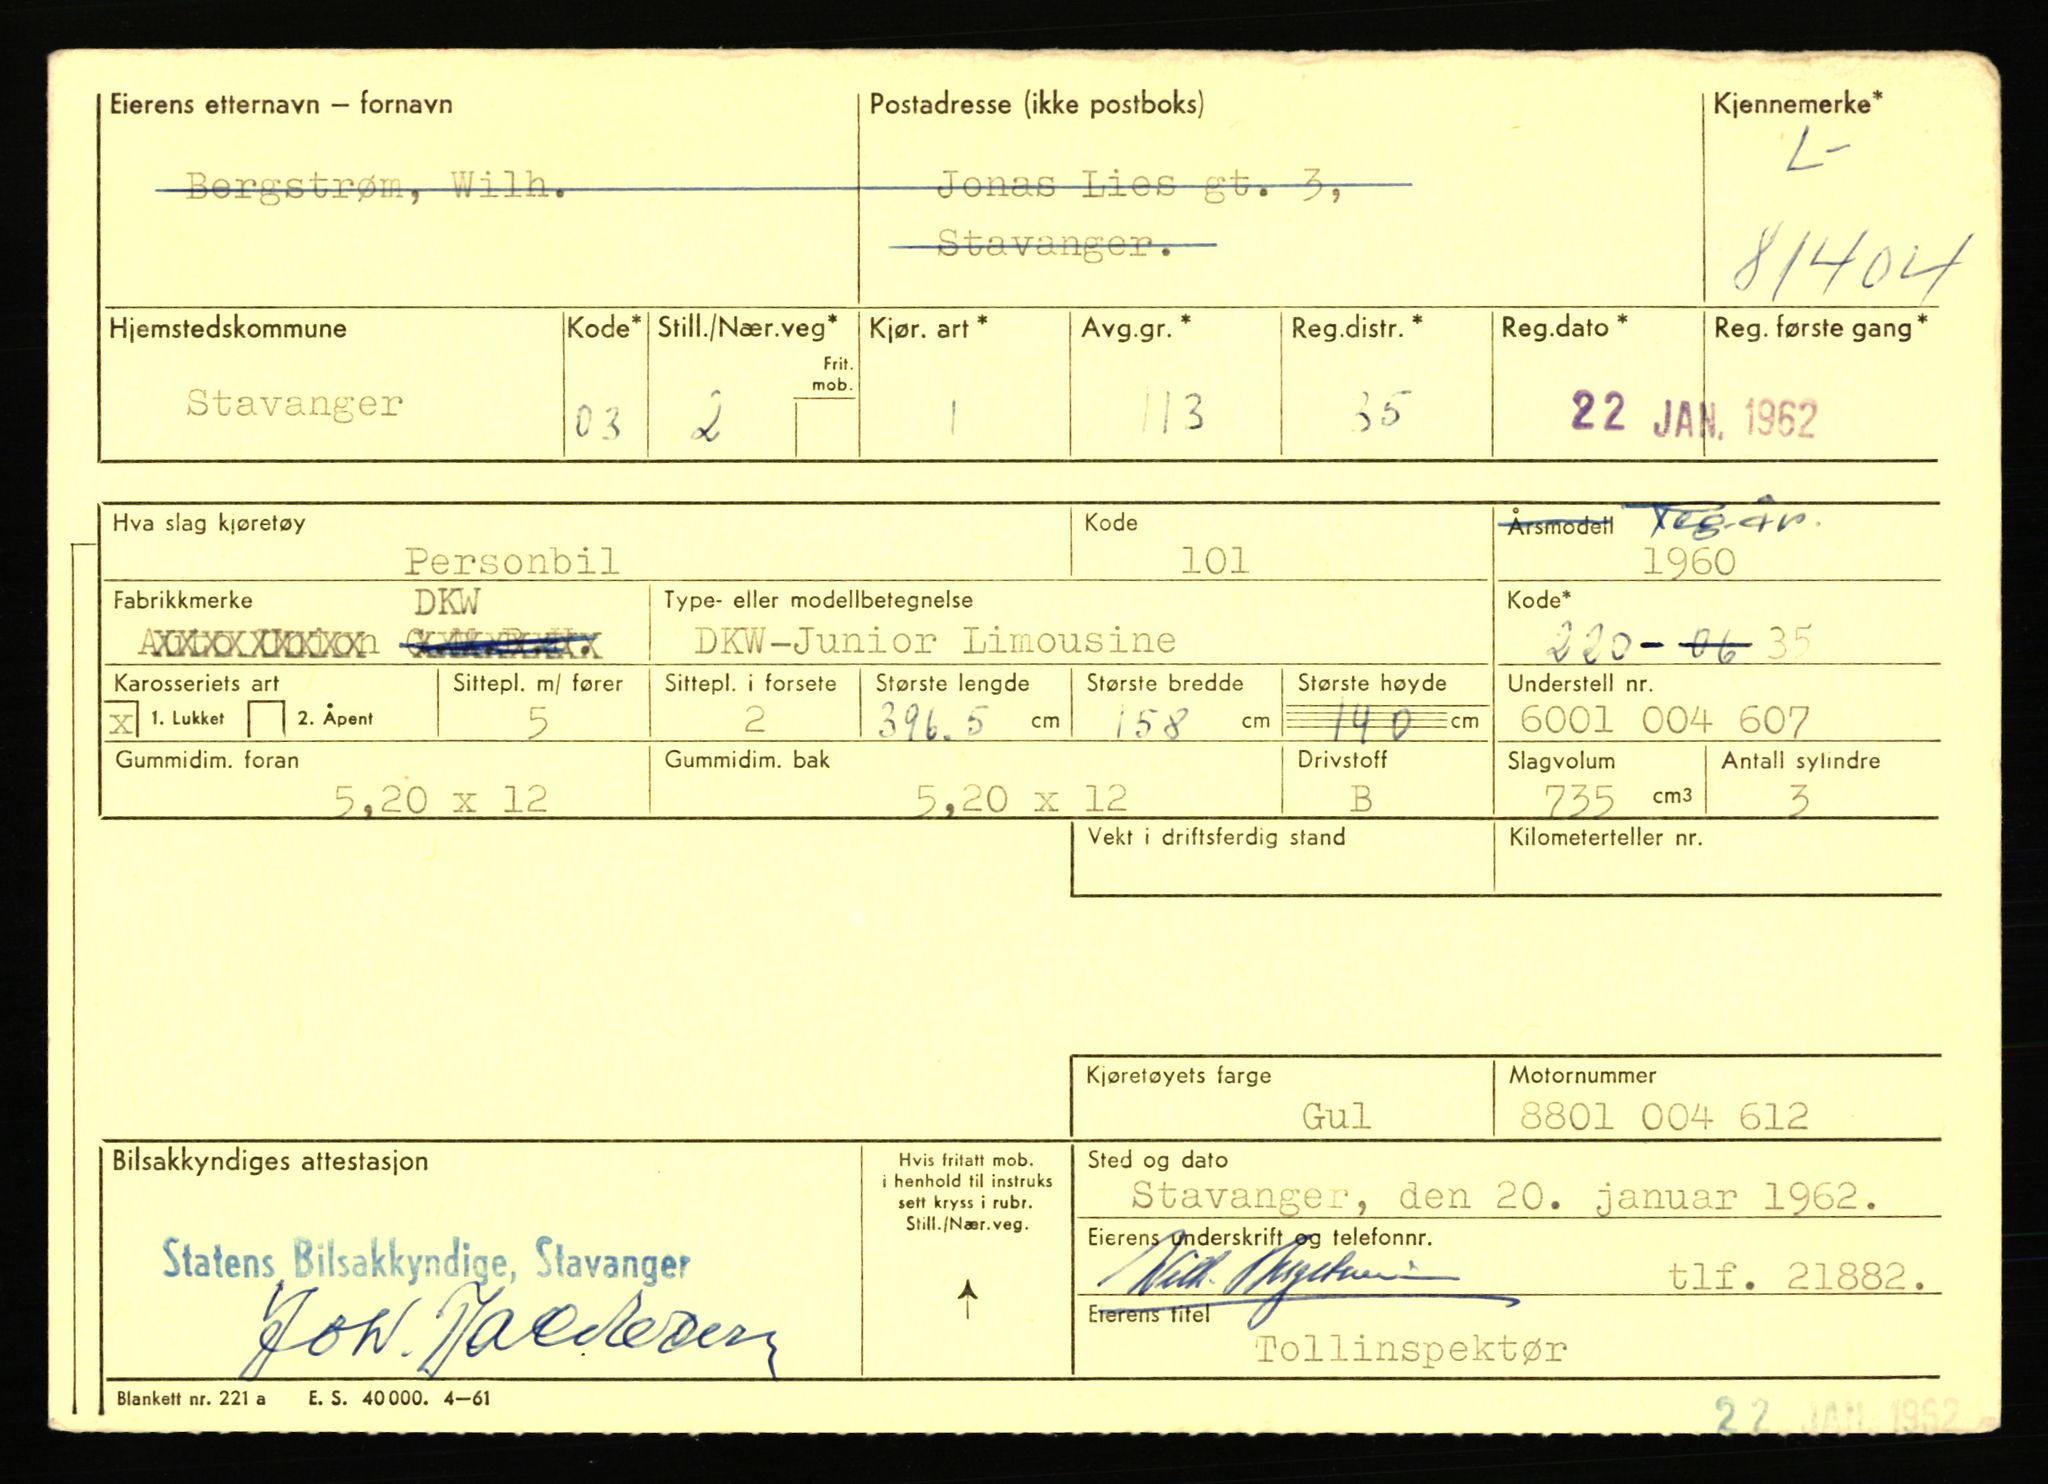 Eierens etternavn – fornavn
Postadresse (ikke postboks)
Kjennemerke*
L-
Bergstrøm, Wilh.
Jonas Lies gt. 3,
Stavanger.
81404
Hjemstedskommune
Kode*
Still./Nær.veg*
Frit. mob.
Kjør. art *
Avg.gr. *
Reg.distr. *
Reg.dato *
Reg. første gang*
Stavanger
03
2
1
113
35
22 JAN. 1962
Hva slag kjøretøy
Kode
Årsmodell Reg.år.
Personbil
101
1960
Fabrikkmerke
DKW
Type- eller modellbetegnelse
Kode*
Auto Union
DKW-Junior Limousine
220- 06 35
Karosseriets art
Sittepl. m/ fører
Sittepl. i forsete
Største lengde
Største bredde
Største høyde
Understell nr.
x 1. Lukket
2. Åpent
5
2
396.5 cm
158 cm
140 cm
6001 004 607
Gummidim. foran
Gummidim. bak
Drivstoff
Slagvolum
Antall sylindre
5,20 x 12
5,20 x 12
B
735 cm3
3
Vekt i driftsferdig stand
Kilometerteller nr.
Kjøretøyets farge
Motornummer
Gul
8801 004 612
Bilsakkyndiges attestasjon
Hvis fritatt mob.
i henhold til instruks
sett kryss i rubr.
Still./Nær.veg.
Sted og dato
Stavanger, den 20. januar 1962.
Eierens underskrift og telefonnr.
Statens Bilsakkyndige, Stavanger
Wilh. Bergstrøm
tlf. 21882.
Eierens titel
Tollinspektør
Blankett nr. 221 a E. S. 40 000. 4–61
22 JAN. 1962